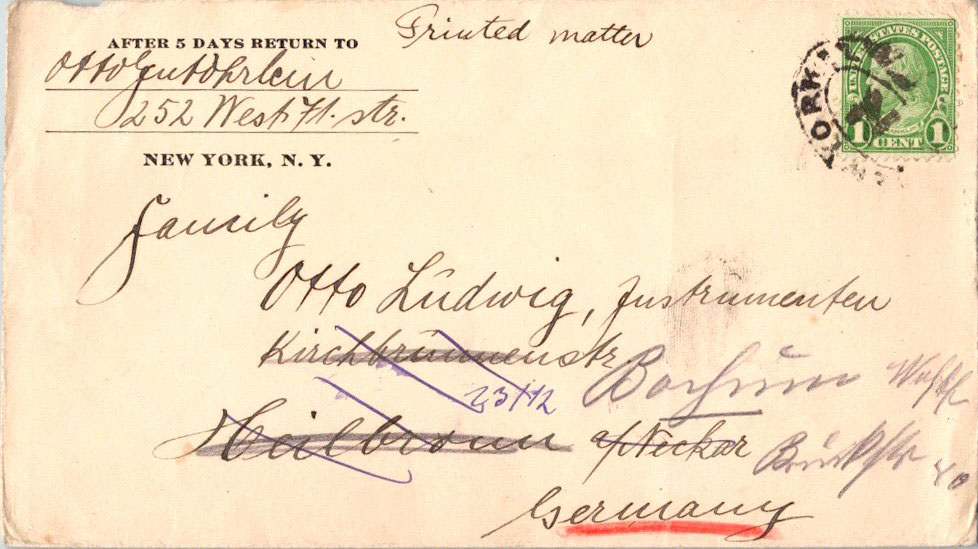 Printed matter
AFTER 5 DAYS RETURN TO
Otto
252 West 71. str.
NEW YORK, N. Y.
UNITED STATES POSTAGE
1 CENT 1
YORK
Family
Otto Lüdwig, Instrumenten
Kirchbrünnenstr
23/12
Bochum
Heilbronn a/Neckar
Brückstr 40
Germany